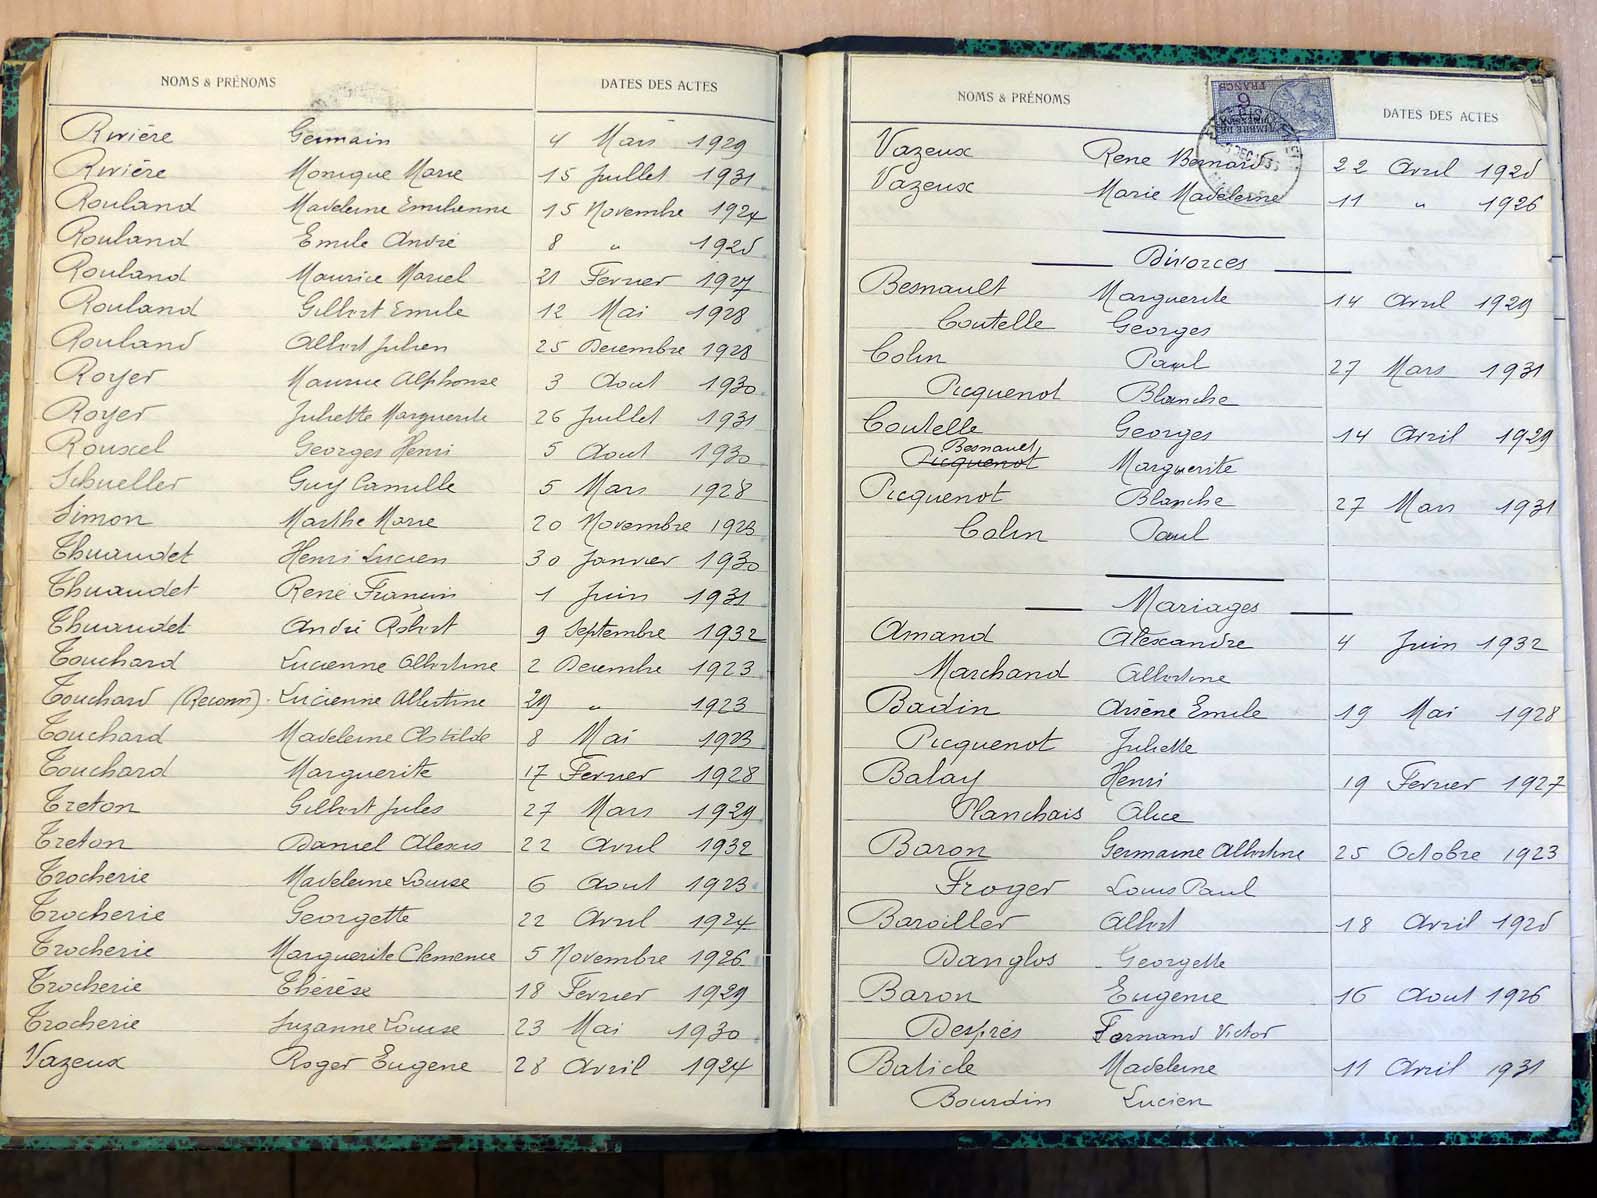 NOMS & PRÉNOMS DATES DES ACTES
Rivière Germain 4 Mars 1929
Rivière Monique Marie 15 Juillet 1931
Rouland Madeleine Emilienne 15 Novembre 1924
Rouland Emile André 8 " 1925
Rouland Maurice Marcel 21 Fevrier 1927
Rouland Gilbert Emile 12 Mai 1928
Rouland Albert Julien 25 Decembre 1928
Royer Maurice Alphonse 3 Aout 1930
Royer Juliette Marguerite 26 Juillet 1931
Rouxel Georges Henri 5 Aout 1930
Schueller Guy Camille 5 Mars 1928
Simon Marthe Marie 20 Novembre 1923
Thuaudet Henri Lucien 30 Janvier 1930
Thuaudet René Francis 1 Juin 1931
Thuaudet André Robert 9 Septembre 1932
Touchard Lucienne Albertine 2 Decembre 1923
Touchard (Reconn) Lucienne Albertine 29 " 1923
Touchard Madeleine Clotilde 8 Mai 1923
Touchard Marguerite 17 Fevrier 1928
Treton Gilbert Jules 27 Mars 1929
Treton Daniel Alexis 22 Avril 1932
Trocherie Madeleine Louise 6 Aout 1923
Trocherie Georgette 22 Avril 1924
Trocherie Marguerite Clemence 5 Novembre 1926
Trocherie Thérèse 18 Fevrier 1929
Trocherie Suzanne Louise 23 Mai 1930
Vazeux Roger Eugene 28 Avril 1924
NOMS & PRÉNOMS DATES DES ACTES
6 FRANCS
Vazeux Rene Bernard 22 Avril 1925
Vazeux Marie Madeleine 11 " 1926
Divorces
Besnault Marguerite 14 Avril 1929
Coutelle Georges
Colin Paul 27 Mars 1931
Picquenot Blanche
Coutelle Georges 14 Avril 1929
Besnault
Picquenot Marguerite
Picquenot Blanche 27 Mars 1931
Colin Paul
Mariages
Amand Alexandre 4 Juin 1932
Marchand Albertine
Badin Arsène Emile 19 Mai 1928
Picquenot Juliette
Balay Henri 19 Fevrier 1927
Planchais Alice
Baron Germaine Albertine 25 Octobre 1923
Froger Louis Paul
Baroiller Albert 18 Avril 1925
Danglos Georgette
Baron Eugenie 16 Aout 1926
Després Fernand Victor
Baticle Madeleine 11 Avril 1931
Bourdin Lucien